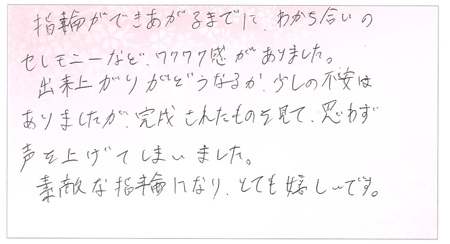 指輪ができあがるまでに、わかち合いの
セレモニーなど、ワクワク感がありました。
出来上がりがどうなるか、少しの不安は
ありましたが、完成されたものを見て、思わず
声を上げてしまいました。
素敵な指輪になり、とても嬉しいです。